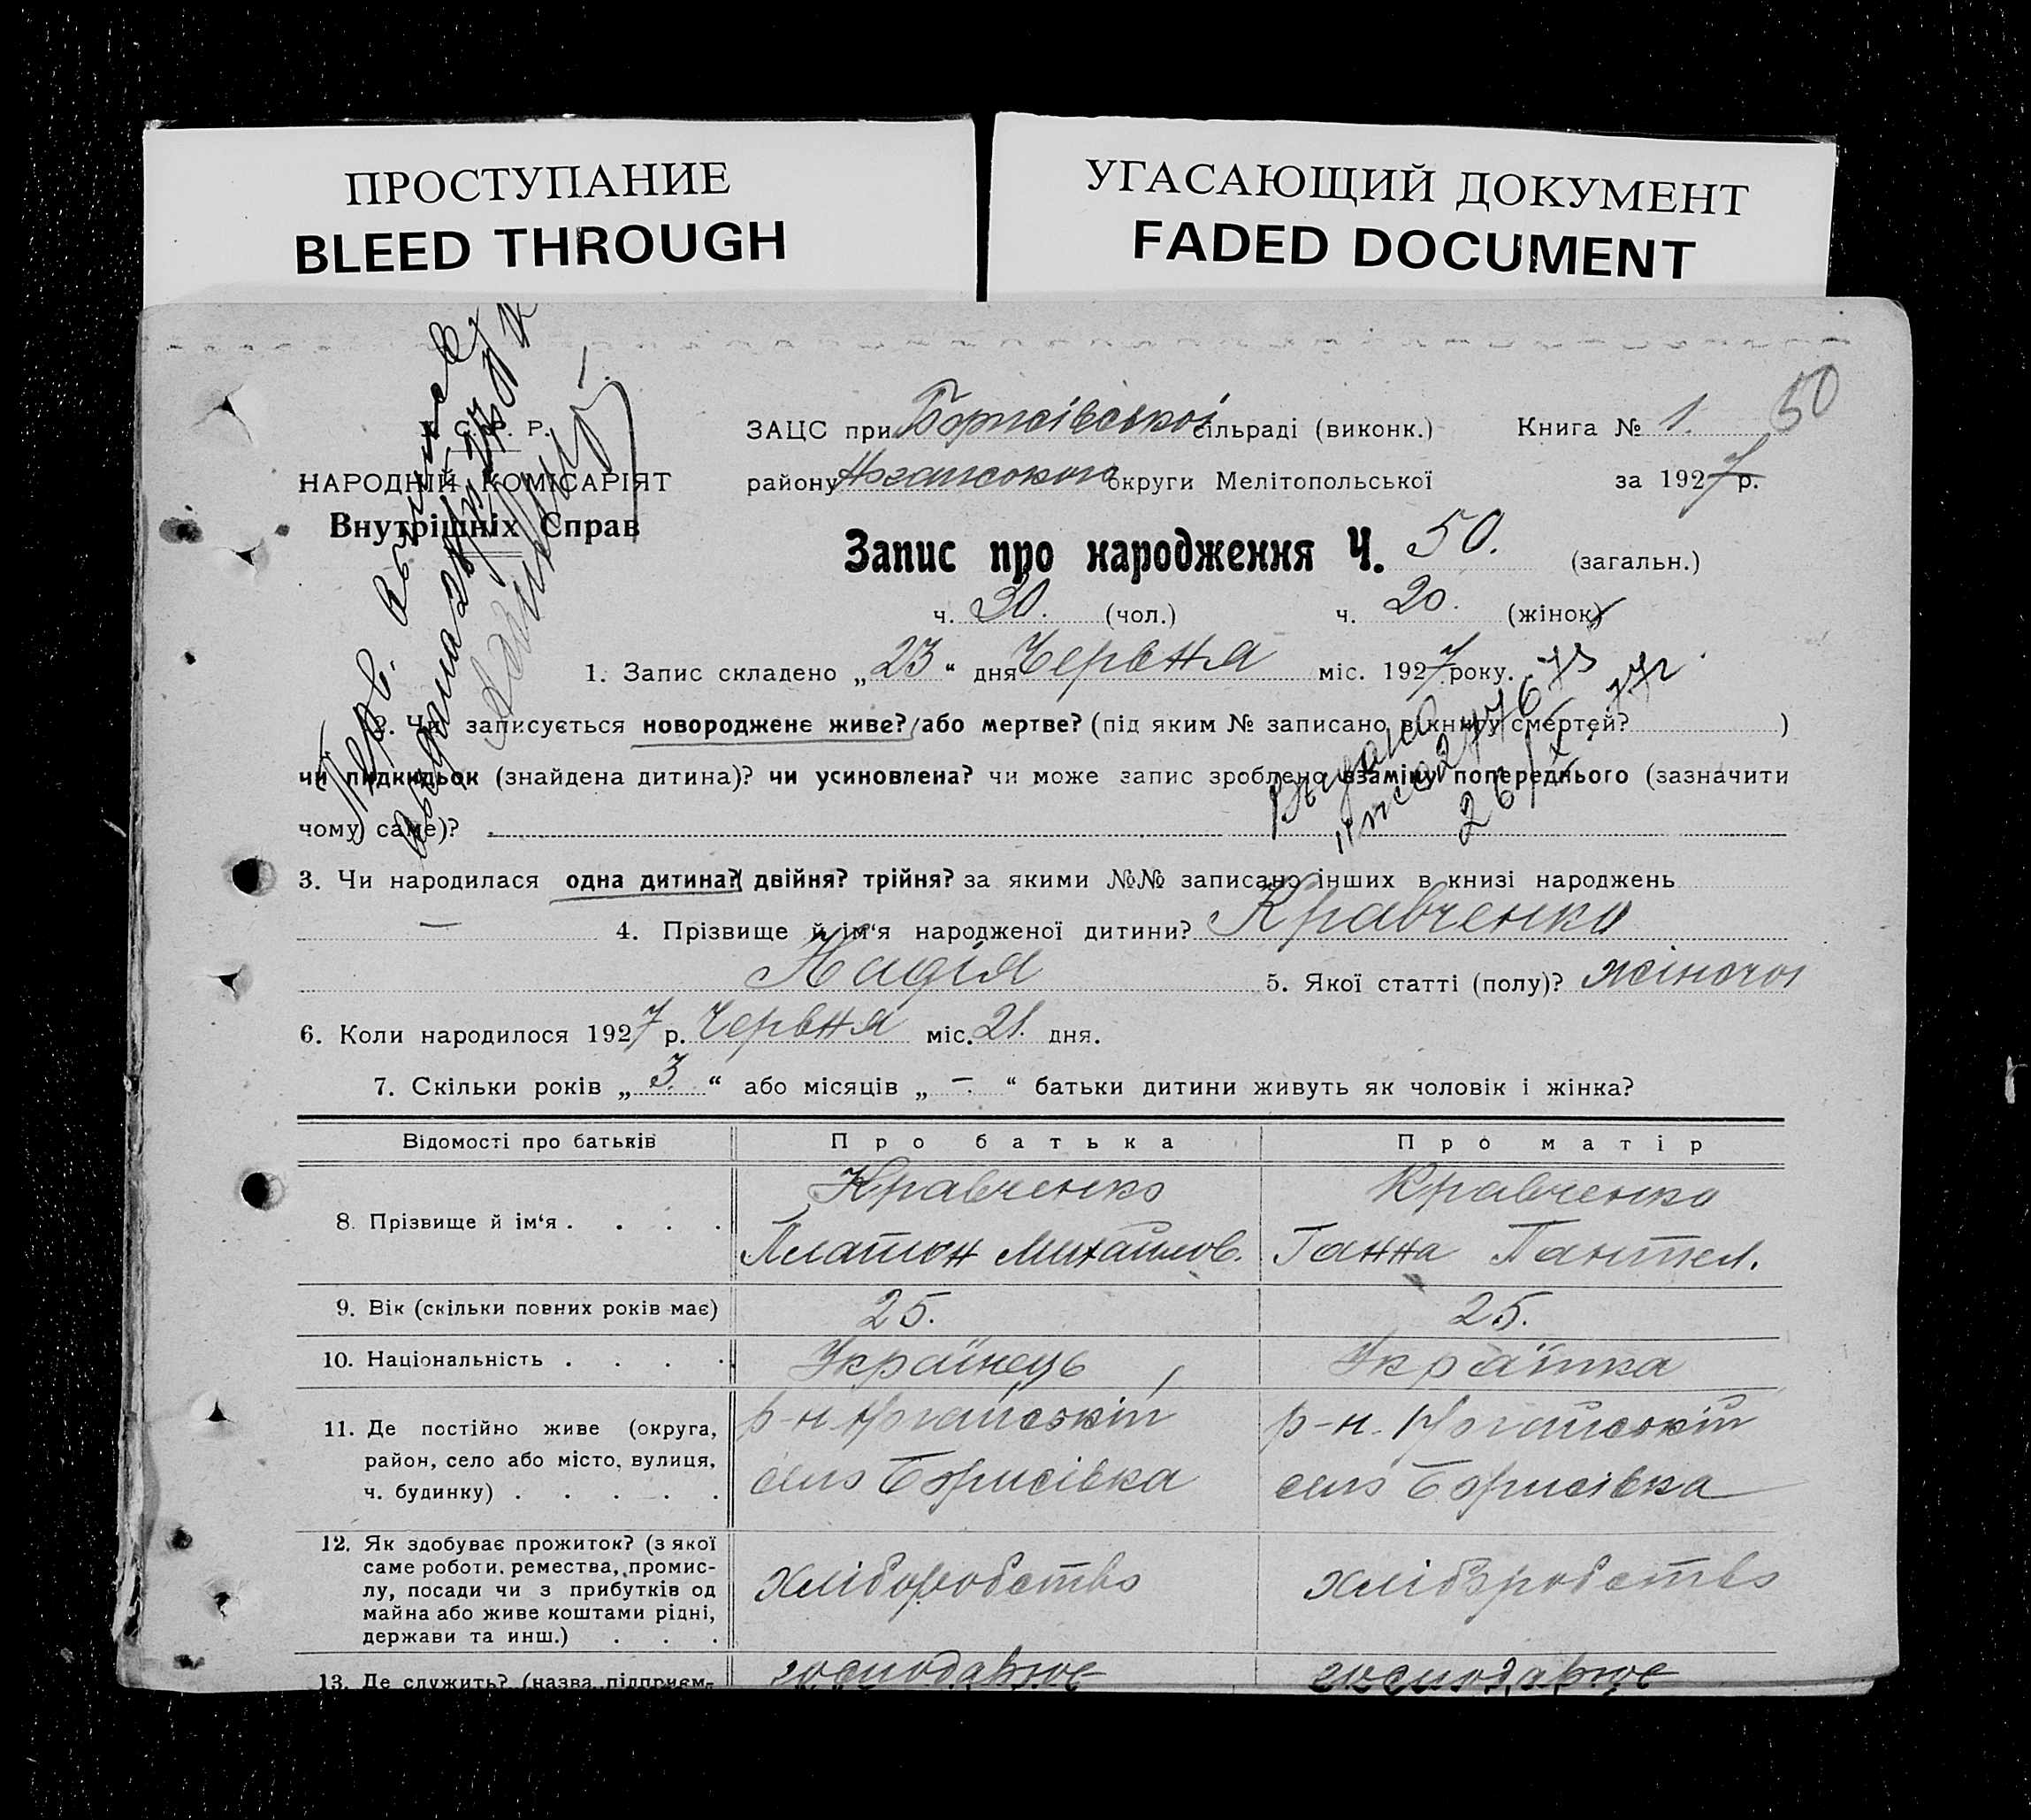 ПРОСТУПАНИЕ
BLEED THROUGH
УГАСАЮЩИЙ ДОКУМЕНТ
FADED DOCUMENT
50
С. Р. Р.
НАРОДНІЙ КОМІСАРІЯТ
Внутрішніх Справ
ЗАЦС при Борисівської сільраді (виконк.) Книга № 1.
району Ногайського округи Мелітопольської за 1927 р.
Запис про народження Ч. 50. (загальн.)
ч. 30. (чол.) ч. 20. (жінок)
1. Запис складено „23“ дня Червня міс. 1927 року.
2. Чи записується новороджене живе? або мертве? (під яким № записано в книгу смертей? )
чи пидкидьок (знайдена дитина)? чи усиновлена? чи може запис зроблено взаміну попереднього (зазначити
чому саме)?
3. Чи народилася одна дитина? двійня? трійня? за якими №№ записано інших в книзі народжень
— 4. Прізвище й ім‘я народженої дитини? Кравченко
Надія 5. Якої статті (полу)? жіночої
6. Коли народилося 1927 р. Червня міс. 21. дня.
7. Скільки років „3.“ або місяців „-.“ батьки дитини живуть як чоловік і жінка?
Відомості про батьків Про батька Про матір
8. Прізвище й ім‘я . . . . . Кравченко Кравченко
Платон Михайлов. Ганна Пантел.
9. Вік (скільки повних років має) 25. 25.
10. Національність . . . . . Українець Українка
11. Де постійно живе (округа, р-н. Ногайській р-н. Ногайській
район, село або місто, вулиця, село Борисівка село Борисівка
ч. будинку) . . . . .
12. Як здобуває прожиток? (з якої
саме роботи, ремества, промис-
лу, посади чи з прибутків од хліборобство хліборобство
майна або живе коштами рідні,
держави та инш.) . . .
13. Де служить? (назва підприєм- господарює господарює